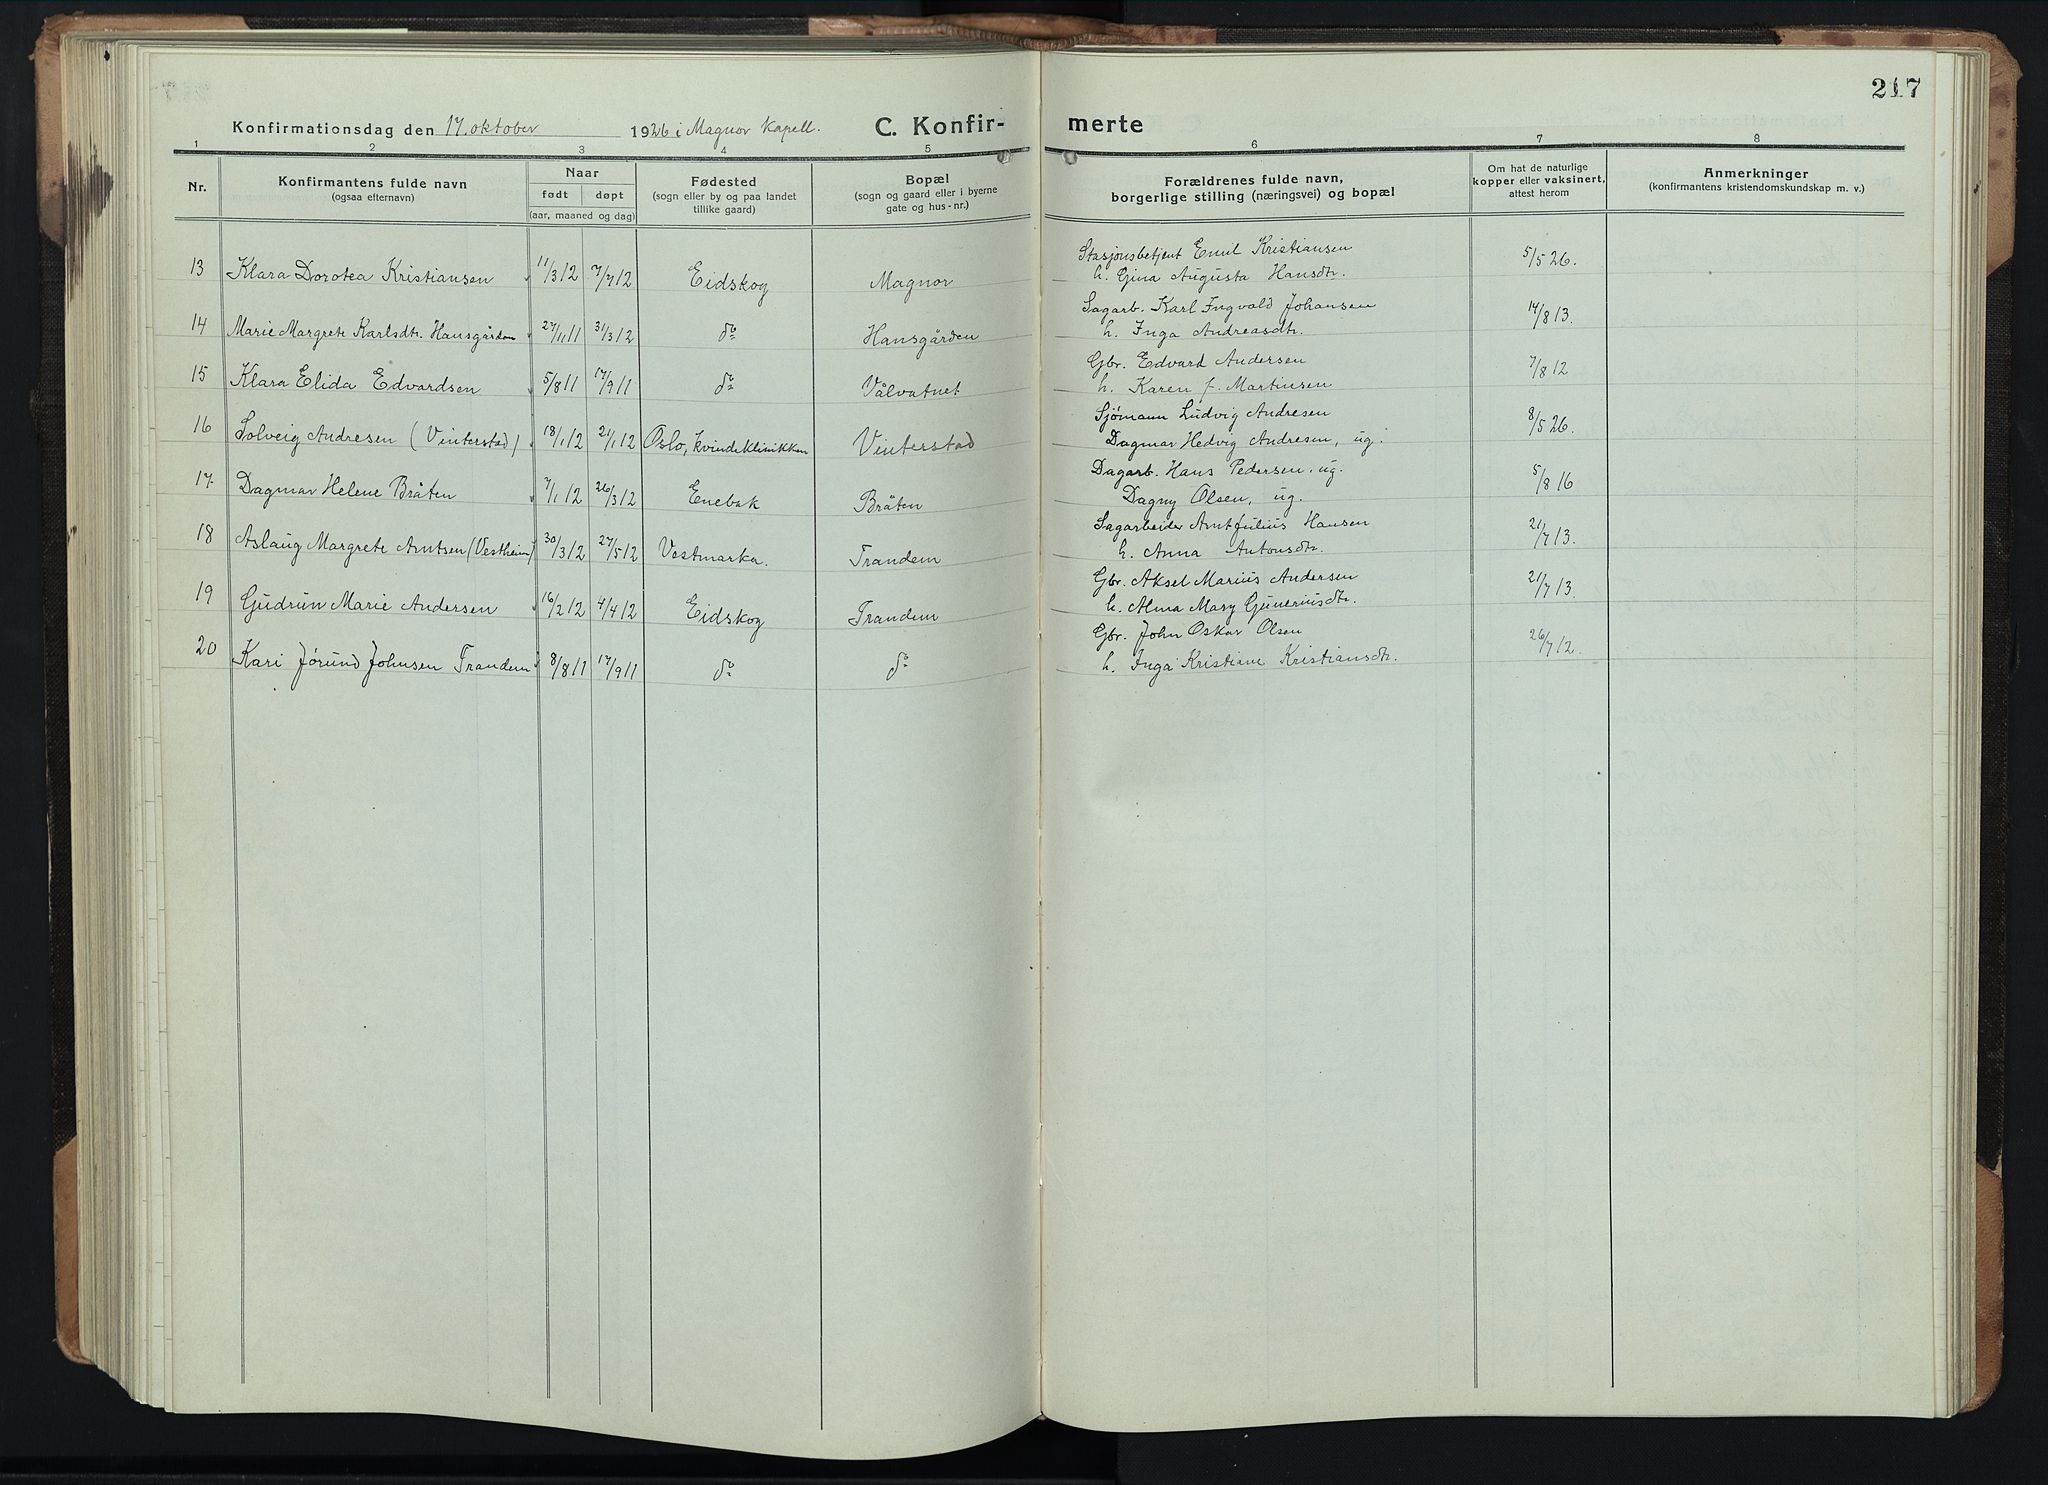 217
Konfirmationsdag den 17. oktober 1926 i Magnor Kapell. C. Konfir- merte
1 2 3 4 5 6 7 8
Nr. Konfirmantens fulde navn (ogsaa efternavn) Naar født døpt (aar, maaned og dag) Fødested (sogn eller by og paa landet tillike gaard) Bopæl (sogn og gaard eller i byerne gate og hus-nr.) Forældrenes fulde navn, borgerlige stilling (næringsvei) og bopæl Om hat de naturlige kopper eller vaksinert, attest herom Anmerkninger (konfirmantens kristendomskundskap m. v.)
13 Klara Dorotea Kristiansen 11/3 12 7/7 12 Eidskog Magnor Stasjonsbetjent Emil Kristiansen 5/5 26.
h. Gina Augusta Hansdtr.
14 Marie Margrete Karlsdtr. Hansgården 27/11 11 31/3 12 do Hansgården Sagarb. Karl Ingvald Johansen 14/8 13.
h. Inga Andreasdtr.
15 Klara Elida Edvardsen 5/8 11 17/9 11 do Vålvatnet Gbr. Edvard Andersen 7/8 12
h. Karen f. Martinsen
16 Solveig Andresen (Vinterstad) 18/1 12 21/1 12 Oslo, kvindeklinikken Vinterstad Sjømann Ludvig Andresen 8/5 26.
Dagmar Hedvig Andresen, ug.
17. Dagmar Helene Bråten 7/1 12 26/3 12 Enebak Bråten Dagarb. Hans Pedersen, ug. 5/8 16
Dagny Olsen, ug.
18 Aslaug Margrete Arntsen (Vestheim) 30/3 12 27/5 12 Vestmarka. Trandem Sagarbeider Arnt Julius Hansen 21/7 13.
h. Anna Antonsdtr.
19 Gudrun Marie Andersen 16/2 12 4/4 12 Eidskog Trandem Gbr. Aksel Marius Andersen 21/7 13.
h. Alma Mary Guneriusdtr.
20 Kari Jørund Johnsen Trandem 8/8 11 17/9 11 do do Gbr. John Oskar Olsen 26/7 12.
h. Inga Kristiane Kristiansdtr.